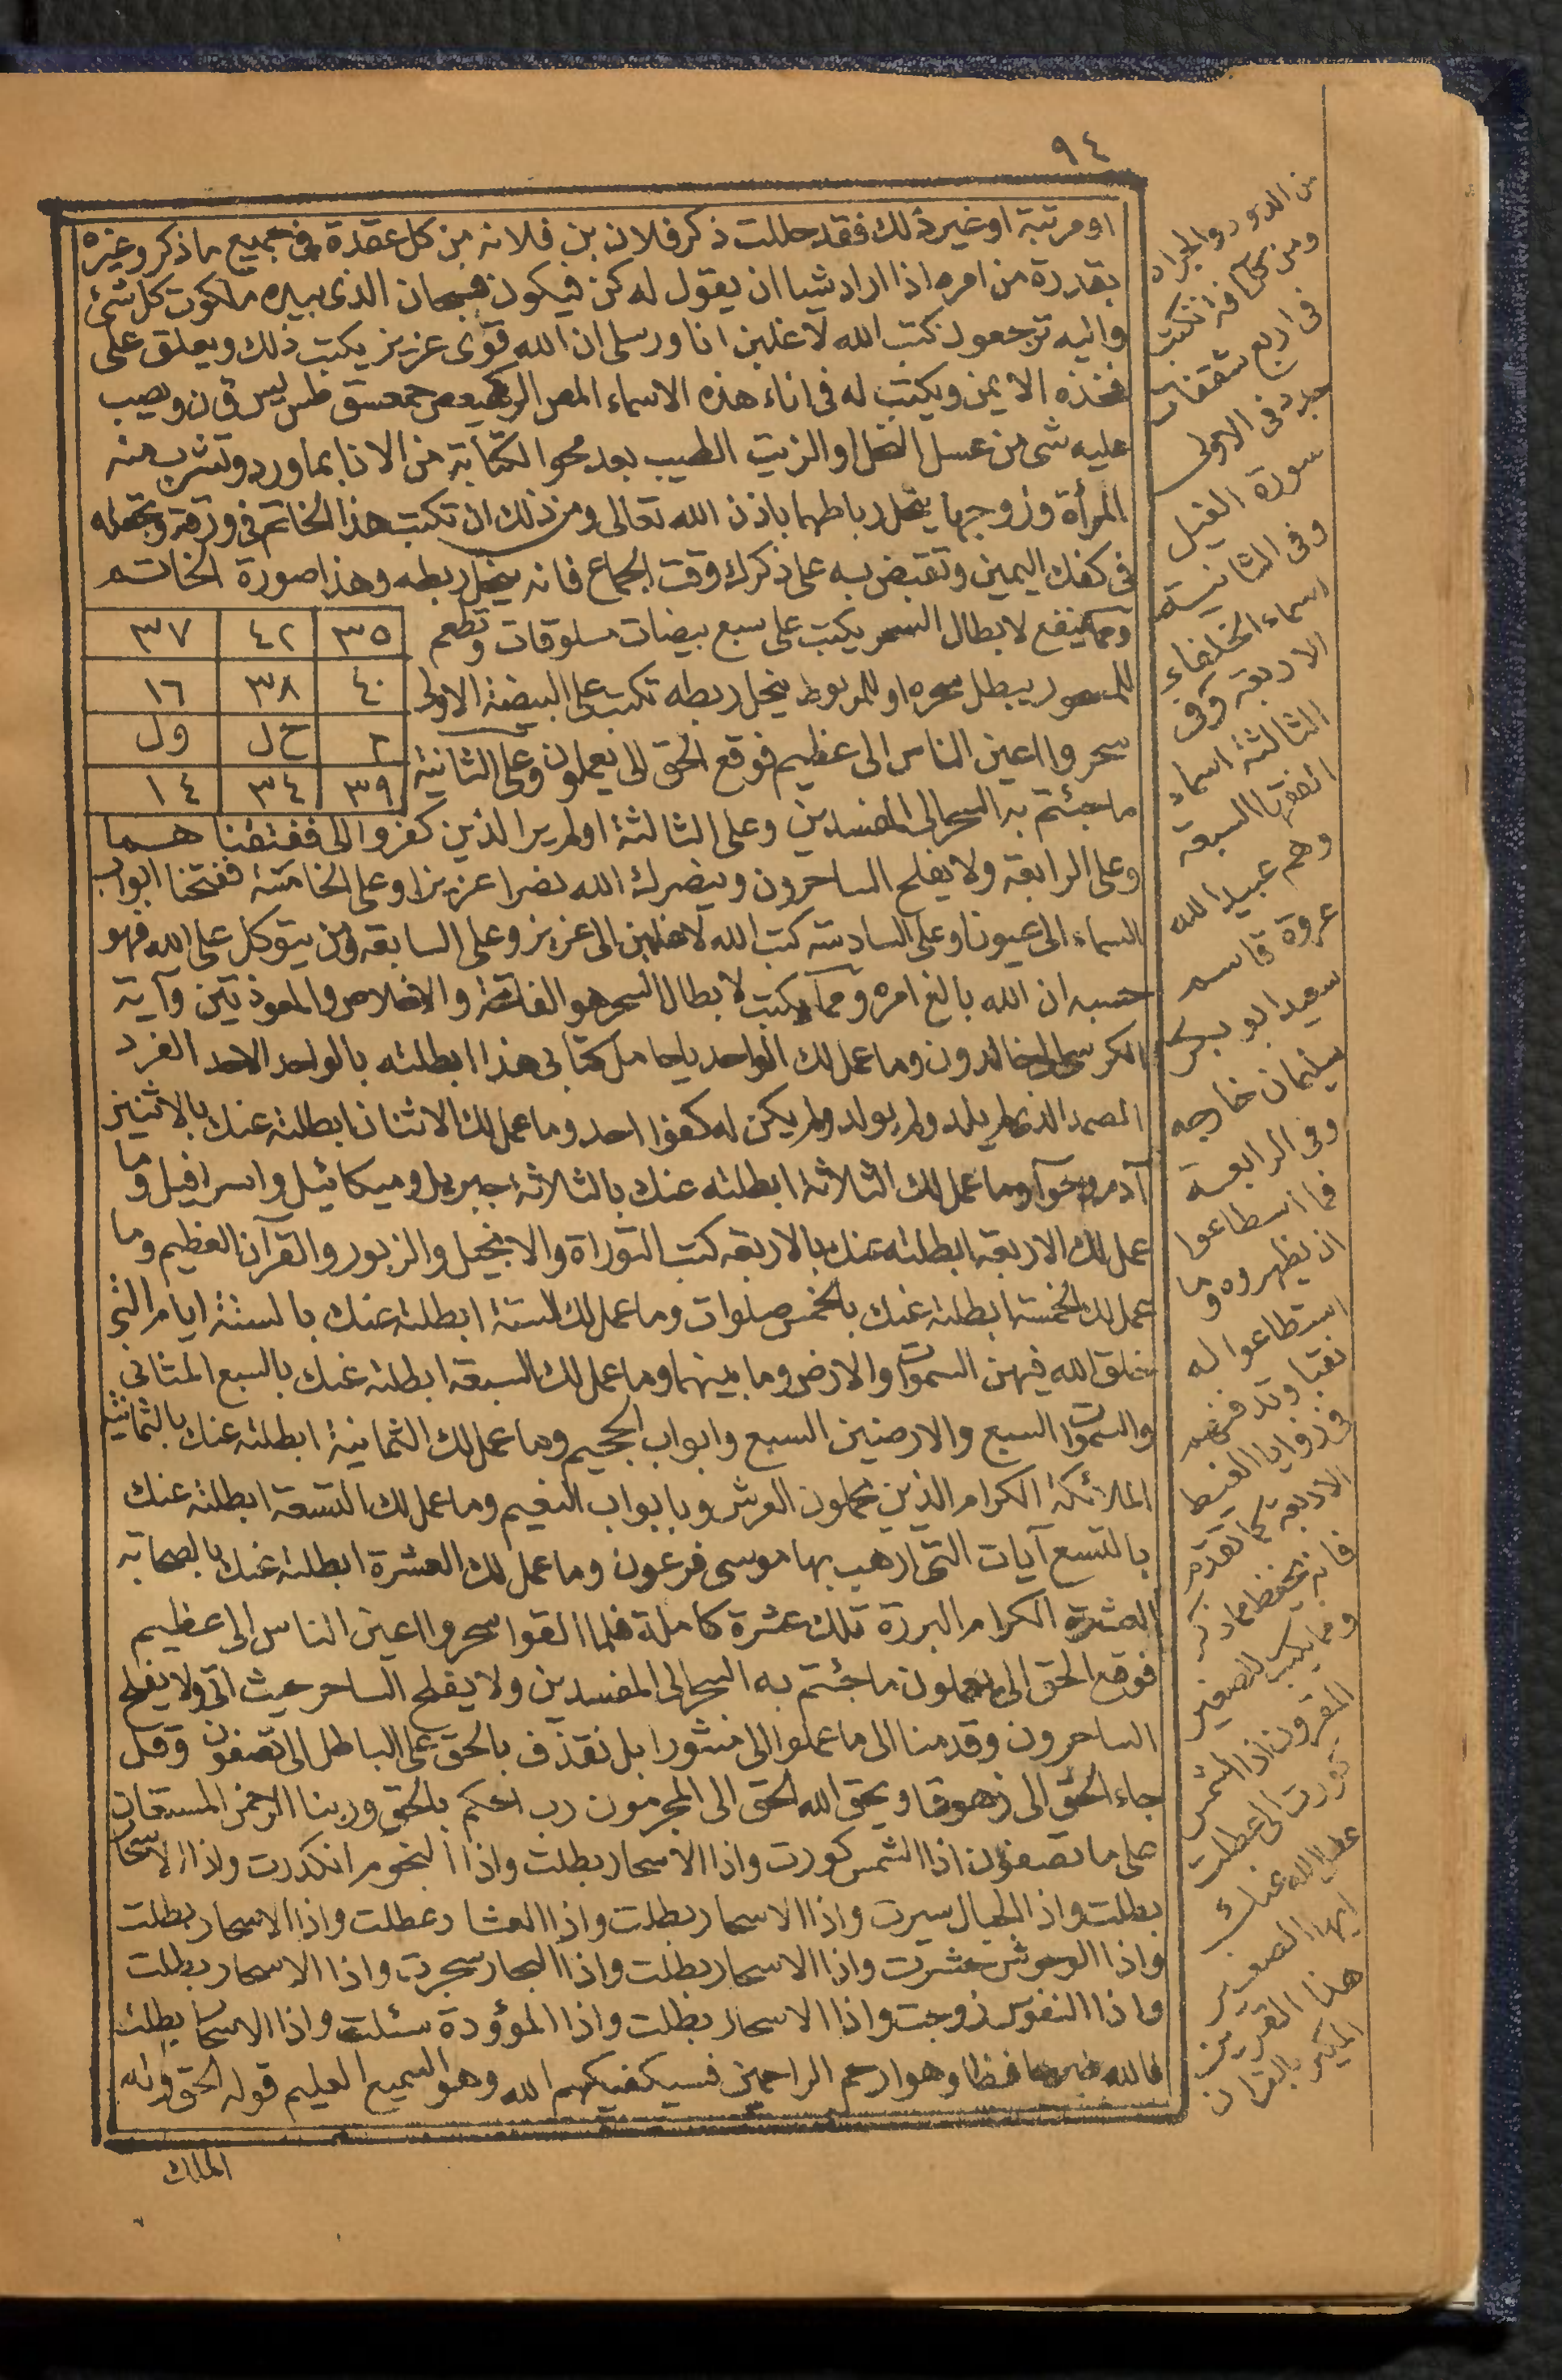 ٩٤
او مرتبة او غير ذلك فقد حللت ذكر فلان بن فلانه من كل عقدة في جميع ما ذكر وغيره
بقدرة من امره اذا اراد شيا ان يقول له كن فيكون فسبحان الذى بيده ملكوت كل شئ
واليه ترجعون كتب الله لاغلبن انا ورسلى ان الله قوى عزيز يكتب ذلك ويعلق على
فخذه الايمن ويكتب له فى اناء هذه الاسماء المص الر كهيعص حمعسق طس يس ق ن ويصب
عليه شى من عسل النحل او الزيت الطيب بعد محو الكتابة من الانا بماورد وتشرب منه
المرأة وزوجها ينحل رباطهما باذن الله تعالى ومن ذلك ان تكتب هذا الخاتم فى ورقة وتجعله
فى كفك اليمين وتقبض به على ذكرك وقت الجماع فانه ينحل ربطه وهذا صورة الخاتم
ومما ينفع لابطال السحر يكتب على سبع بيضات مسلوقات وتطعم
للمسحور يبطل سحره او للمربوط ينحل ربطه تكتب على البيضة الاولى
سحروا اعين الناس الى عظيم فوقع الحق الى يعملون وعلى الثانية
٣٥ ٤٢ ٣٧
٤٠ ٣٨ ١٦
٢ ح ل و ل
٣٩ ٣٤ ١٤
ما جئتم به السحر الى المفسدين وعلى الثالثة اولم ير الذين كفروا الى ففتقناهما
وعلى الرابعة ولا يفلح الساحرون وينصرك الله نصرا عزيزا وعلى الخامسة ففتحنا ابواب
السماء الى عيونا وعلى السادسة كتب الله لاغلبن الى عزيز وعلى السابعة ومن يتوكل على الله فهو
حسبه ان الله بالغ امره ومما يكتب لابطال السحر هو الفاتحة والاخلاص والمعوذتين وآية
الكرسى الى خالدون وما عمل لك الواحد ياحامل كتابى هذا ابطلته بالواحد الاحد الفرد
الصمد الذى لم يلد ولم يولد ولم يكن له كفوا احد وما عمل لك الاثنان ابطلته عنك بالاثنين
آدم وحوآ وما عمل لك الثلاثة ابطلته عنك بالثلاثة جبريل وميكائيل واسرافيل وما
عمل لك الاربعة ابطلته عنك بالاربعة كتب التوراة والانجيل والزبور والقرآن العظيم وما
عمل لك الخمسة ابطلته عنك بالخمس صلوات وما عمل لك الستة ابطلته عنك بالستة ايام التى
خلق الله فيهن السموات والارض وما بينهما وما عمل لك السبعة ابطلته عنك بالسبع المثانى
والسموات السبع والارضين السبع وابواب الجحيم وما عمل لك الثمانية ابطلته عنك بالثمانية
الملائكة الكرام الذين يحملون العرش وبابواب النعيم وما عمل لك التسعة ابطلته عنك
بالتسع آيات التى ارهب بها موسى فرعون وما عمل لك العشرة ابطلته عنك بالصحابة
العشرة الكرام البررة تلك عشرة كاملة فلما القوا سحروا اعين الناس الى عظيم
فوقع الحق الى يعملون ما جئتم به السحر الى المفسدين ولا يفلح الساحر حيث اتى ولا يفلح
الساحرون وقدمنا الى ما عملوا الى منثورا بل نقذف بالحق على الباطل الى تصفون وقل
جاء الحق الى زهوقا ويحق الله الحق الى المجرمون رب احكم بالحق وربنا الرحمن المستعان
على ما تصفون اذا الشمس كورت واذا الاسحار بطلت واذا النجوم انكدرت واذا الاسحار
بطلت واذا الجبال سيرت واذا الاسحار بطلت واذا العشار عطلت واذا الاسحار بطلت
واذا الوحوش حشرت واذا الاسحار بطلت واذا البحار سجرت واذا الاسحار بطلت
واذا النفوس زوجت واذا الاسحار بطلت واذا المؤودة سئلت واذا الاسحار بطلت
فالله خير حافظا وهو ارحم الراحمين فسيكفيكهم الله وهو السميع العليم قوله الحق وله
الملك
من الدود والجراد
ومن تكتب
فى اربع شقفات
جدد فى الاولى
سورة الفيل
وفى الثانية
اسماء الخلفاء
الاربعة وفى
الثالثة اسماء
الفقها السبعة
وهم عبيد الله
عروة قاسم
سعيد ابو بكر
سليمان خارجه
وفى الرابعة
فما اسطاعوا
ان يظهروه وما
استطاعوا له
نقبا وتدفنهم
فى زوايا الغيط
الاربعة كما تقدم
فانه يحفظ مما ذكر
ومما يكتب للصغير
المقرون اذا الشمس
كورت الى عطلت
عطل الله عنك
ايها الصغير
هذا القرين
بالقران